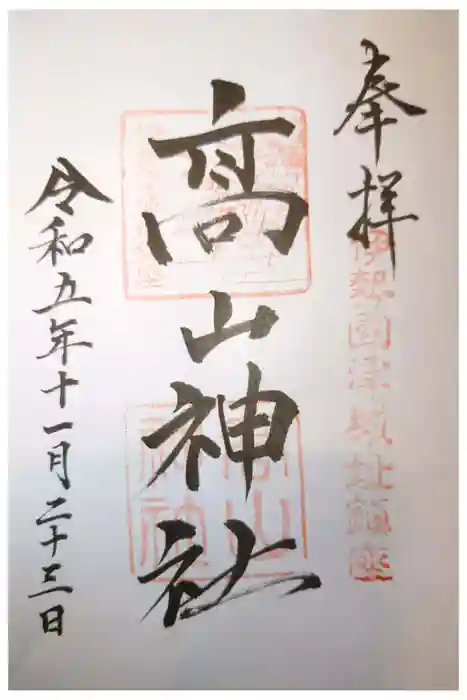 奉拝
伊勢國津城址鎮座
高山神社
高山神社
令和五年十一月二十三日